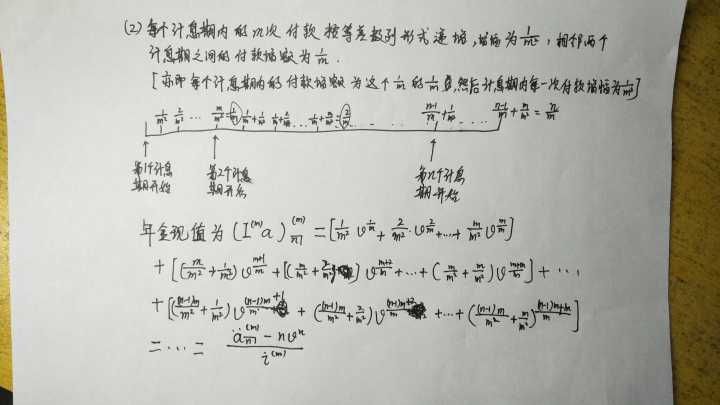 (2) 每个计息期内的m次付款按等差级列形式递增,增幅为1/m²,相邻两个
计息期之间的付款增额为1/m.
[亦即每个计息期内的付款增额为这个1/m的1/m,然后计息期内每一次付款增幅为1/m²]
1/m² 2/m² ... m/m²=1/m 1/m+1/m² 1/m+2/m² ... 1/m+m/m²=2/m ... (n-1)/m+1/m² (n-1)/m+m/m²=n/m
第1个计息 第2个计息 第n个计息
期开始 期开始 期开始
年金现值为 (I^(m)a)^(m)_n̅| = [1/m² v^(1/m) + 2/m² · v^(2/m) + ... + m/m² v^(m/m)]
+ [(m/m² + 1/m²) v^((m+1)/m) + (m/m² + 2/m²) v^((m+2)/m) + ... + (m/m² + m/m²) v^((m+m)/m)] + ...
+ [((n-1)m/m² + 1/m²) v^(((n-1)m+1)/m) + ((n-1)m/m² + 2/m²) v^(((n-1)m+2)/m) + ... + ((n-1)m/m² + m/m²)^(((n-1)m+m)/m)]
= ... = (ä^(m)_n̅| - nv^n)/i^(m)